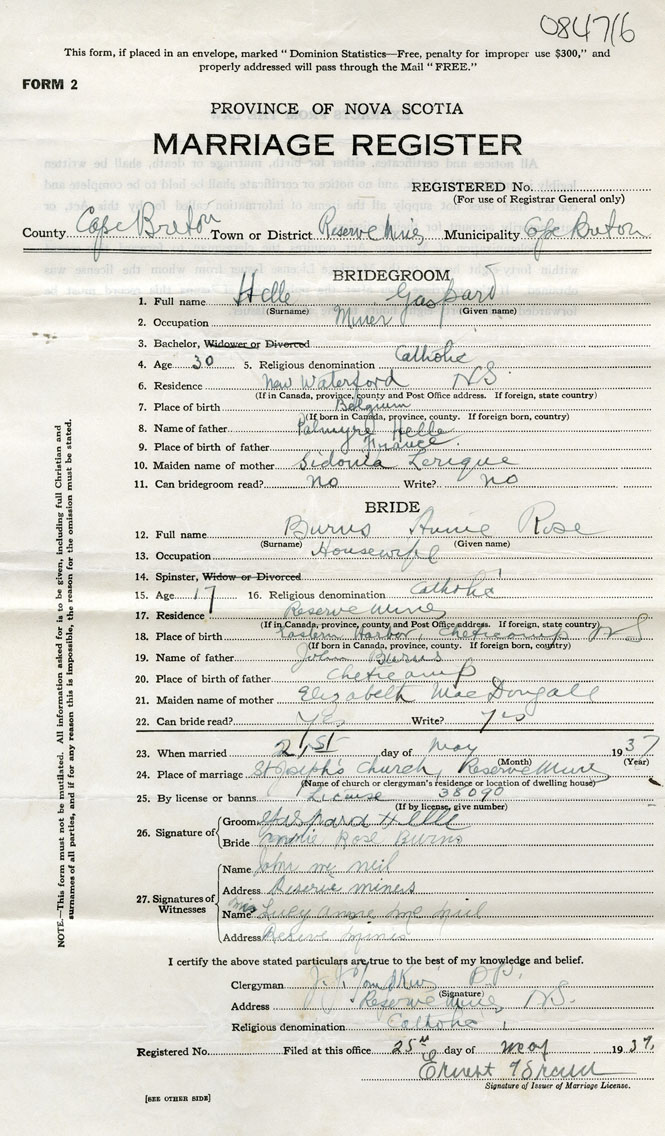 084716
This form, if placed in an envelope, marked "Dominion Statistics—Free, penalty for improper use $300," and
properly addressed will pass through the Mail "FREE."
FORM 2
PROVINCE OF NOVA SCOTIA
MARRIAGE REGISTER
REGISTERED No.
(For use of Registrar General only)
County Cape Breton Town or District Reserve Mines Municipality Cape Breton
BRIDEGROOM
1. Full name Helle Gaspard
(Surname) (Given name)
2. Occupation Miner
3. Bachelor, Widower or Divorced
4. Age 30 5. Religious denomination Catholic
6. Residence New Waterford NS
(If in Canada, province, county and Post Office address. If foreign, state country)
7. Place of birth Belgium
(If born in Canada, province, county. If foreign born, country)
8. Name of father Palmyre Helle
9. Place of birth of father France
10. Maiden name of mother Sidonia
11. Can bridegroom read? no Write? no
BRIDE
12. Full name Burns Annie Rose
(Surname) (Given name)
13. Occupation Housewife
14. Spinster, Widow or Divorced
15. Age 17 16. Religious denomination Catholic
17. Residence Reserve Mines
(If in Canada, province, county and Post Office address. If foreign, state country)
18. Place of birth Eastern Harbor, Cheticamp NS
(If born in Canada, province, county. If foreign born, country)
19. Name of father John Burns
20. Place of birth of father Cheticamp
21. Maiden name of mother Elizabeth MacDougall
22. Can bride read? Yes Write? Yes
23. When married 21st day of May 1937
(Month) (Year)
24. Place of marriage St Joseph's Church, Reserve Mines
(Name of church or clergyman's residence or location of dwelling house)
25. By license or banns License 38090
(If by license, give number)
26. Signature of
Groom Gaspard Helle
Bride Annie Rose Burns
27. Signatures of Witnesses
Name John Mc Neil
Address Reserve mines
Name Mrs Lucy Annie Mc Neil
Address Reserve Mines
I certify the above stated particulars are true to the best of my knowledge and belief.
Clergyman J. J. Tompkins P.P.
(Signature)
Address Reserve Mines, NS.
Religious denomination Catholic
Registered No. Filed at this office 25th day of May 1937.
Ernest
Signature of Issuer of Marriage License.
[SEE OTHER SIDE]
NOTE.—This form must not be mutilated. All information asked for is to be given, including full Christian and
surnames of all parties, and if for any reason this is impossible, the reason for the omission must be stated.